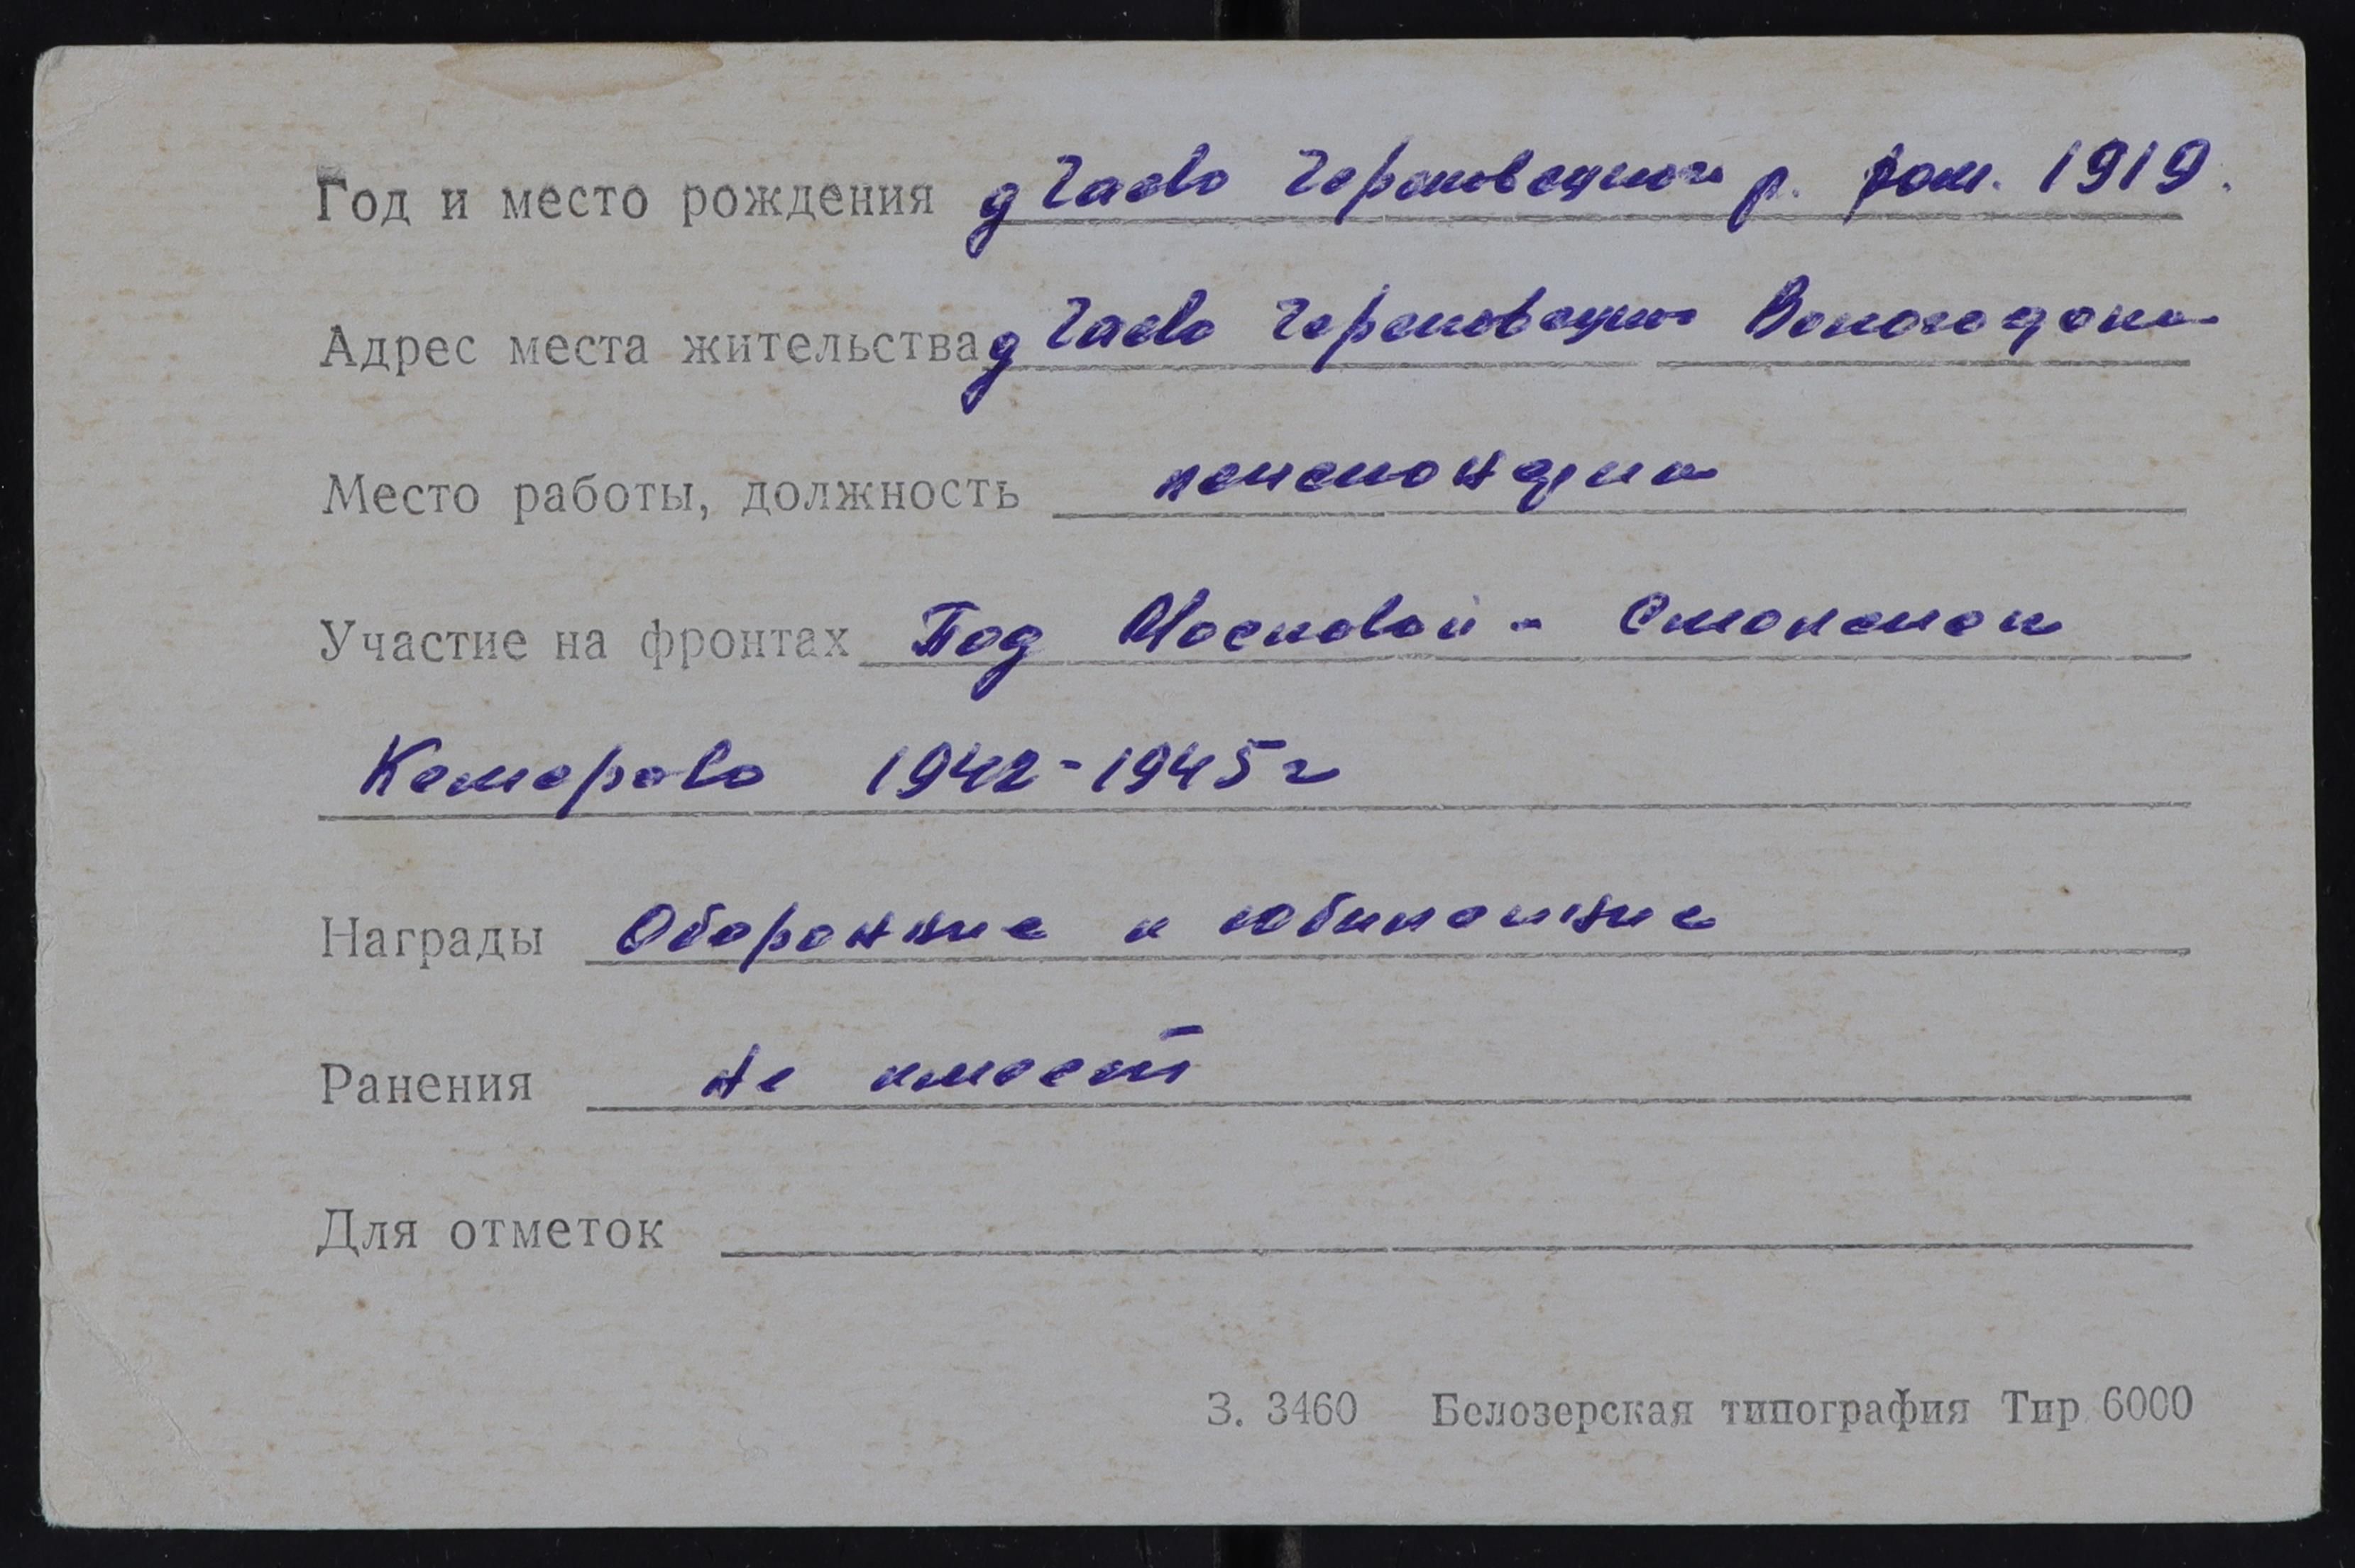 Год и место рождения д Чаево Череповецкого р. рож. 1919.
Адрес места жительства д Чаево Череповецкого Вологодская
Место работы, должность пенсионерка
Участие на фронтах Под Москвой - Смоленск
Кемерово 1942-1945г
Награды Оборонные и юбилейные
Ранения не имеет
Для отметок
З. 3460 Белозерская типография Тир 6000